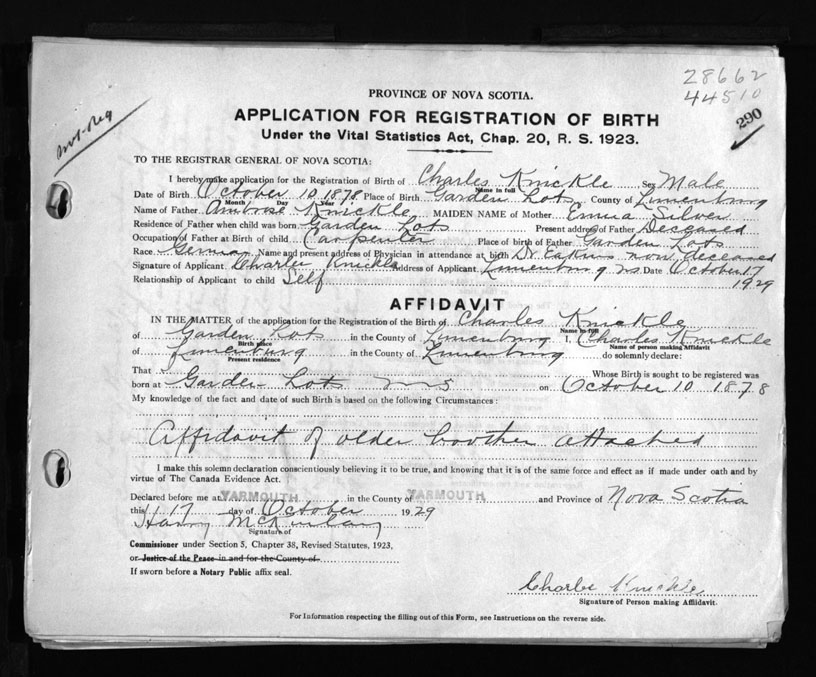 28662
44510
290
PROVINCE OF NOVA SCOTIA.
APPLICATION FOR REGISTRATION OF BIRTH
Under the Vital Statistics Act, Chap. 20, R. S. 1923.
TO THE REGISTRAR GENERAL OF NOVA SCOTIA:
I hereby make application for the Registration of Birth of Charles Knickle Sex Male
Name in full
Date of Birth October 10 1878 Place of Birth Garden Lots County of Lunenburg
Month Day Year
Name of Father Ambrose Knickle MAIDEN NAME of Mother Emma Silver
Residence of Father when child was born Garden Lots Present address of Father Deceased
Occupation of Father at Birth of child Carpenter Place of birth of Father Garden Lots
Race German Name and present address of Physician in attendance at birth Dr Eakins now deceased
Signature of Applicant Charles Knickle Address of Applicant Lunenburg NS Date October 17
1929
Relationship of Applicant to child Self
AFFIDAVIT
IN THE MATTER of the application for the Registration of the Birth of Charles Knickle
Name in full
of Garden Lots in the County of Lunenburg I, Charles Knickle
Birth place Name of person making Affidavit
of Lunenburg in the County of Lunenburg do solemnly declare:
Present residence
That Whose Birth is sought to be registered was
born at Garden Lots NS on October 10 1878
My knowledge of the fact and date of such Birth is based on the following Circumstances:
Affidavit of older brother attached
I make this solemn declaration conscientiously believing it to be true, and knowing that it is of the same force and effect as if made under oath and by
virtue of The Canada Evidence Act.
Declared before me at YARMOUTH in the County of YARMOUTH and Province of Nova Scotia
this 17 day of October 1929
Harry McKinlay
Signature of
Commissioner under Section 5, Chapter 38, Revised Statutes, 1923,
or Justice of the Peace in and for the County of
If sworn before a Notary Public affix seal.
Charles Knickle
Signature of Person making Affidavit.
For Information respecting the filling out of this Form, see Instructions on the reverse side.